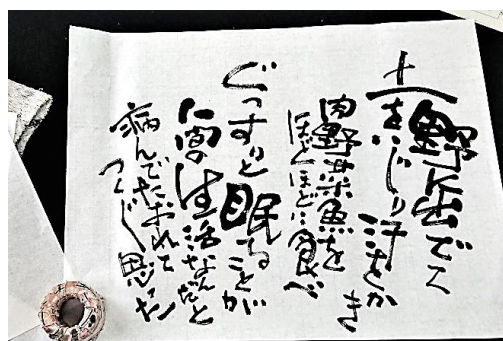 野に出でて
土をいじり汗をかき
肉野菜魚を
ほどほどに食べ
ぐっすりと眠ることが
人間の生活なんだと
病んでたおれて
つくづく思った